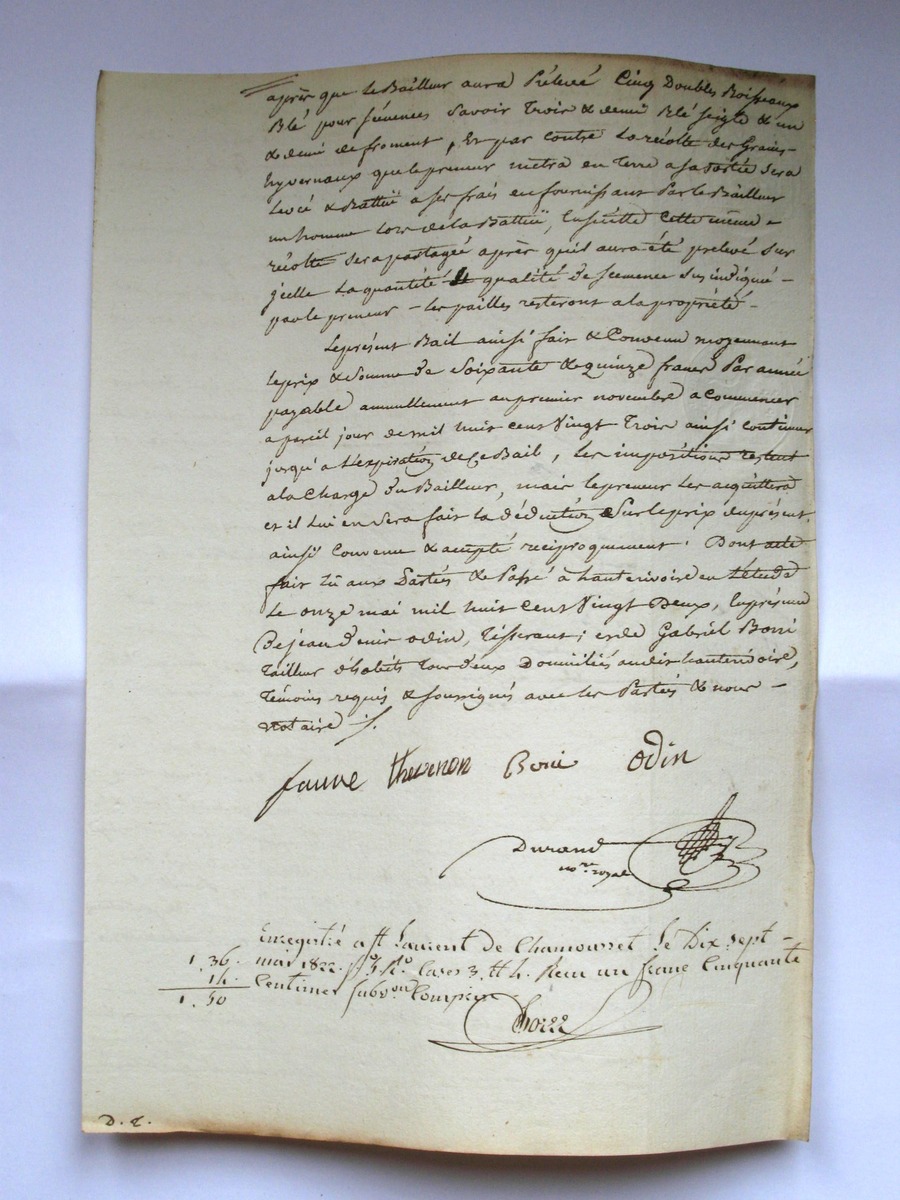 après que le Bailleur aura Prélevé Cinq Doubles Boisseaux
Blé pour semences Savoir Trois & demi Blé seigle & un
& demi de froment, En par contre La récolte des Grains
hyvernaux que le preneur mètra en Terre a sa sortie sera
Levé & Battüe a ses frais en fournissant Par le Bailleur
un homme Lors de la Battüe, Ensuitte cette même
récolte sera partagée après qu'il aura été prelevé sur
jcelle La quantité & qualité de semence sus indiqué
par le preneur - les pailles resteront a la propriété -
Le présent Bail ainsi fait & Convenu moyennant
le prix & Somme de Soixante & quinze francs Par année
payable annuellement au premier novembre a Commencer
a pareil jour de mil huit cent Vingt Trois ainsi continuer
jusqu'a L'expiration de Ce Bail, Les impositions restent
a la Charge du Bailleur, mais le preneur les acquittera
et il Lui en sera fait la déduction Sur le prix du présent,
ainsi Convenu & accepté reciproquement. Dont acte
fait Lû aux Parties & Passé à hauterivoire en L'étude
Le onze mai mil huit cent Vingt Deux, En présence
De jean Denis odin, Tisserant; et de Gabriel Boni
Tailleur d'habits Tous deux Domiciliés audit hauterivoire,
Témoins requis & soussignés avec les Parties & nous
notaire ./.
faure thevenon Boni odin
Durand
no.re royal
Enregistré a St Laurent de Chamousset le Dix sept
mai 1822. Cases 3. Reçu un franc Cinquante
Centimes subv.on Comprise
1. 36.
14.
1. 50
D. T.